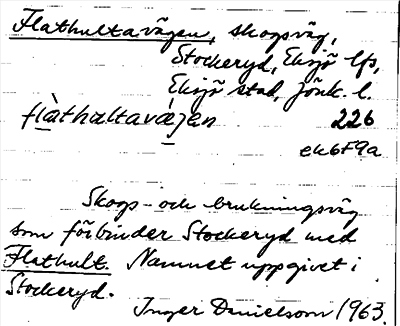 Flathultavägen, skogsväg,
Stockeryd, Eksjö lfs,
Eksjö stad, Jönk. l.
flàthultavä́gen 226
ek6F9a
Skogs- och brukningsväg
som förbinder Stockeryd med
Flathult. Namnet uppgivet i
Stockeryd.
Inger Danielsson 1963.